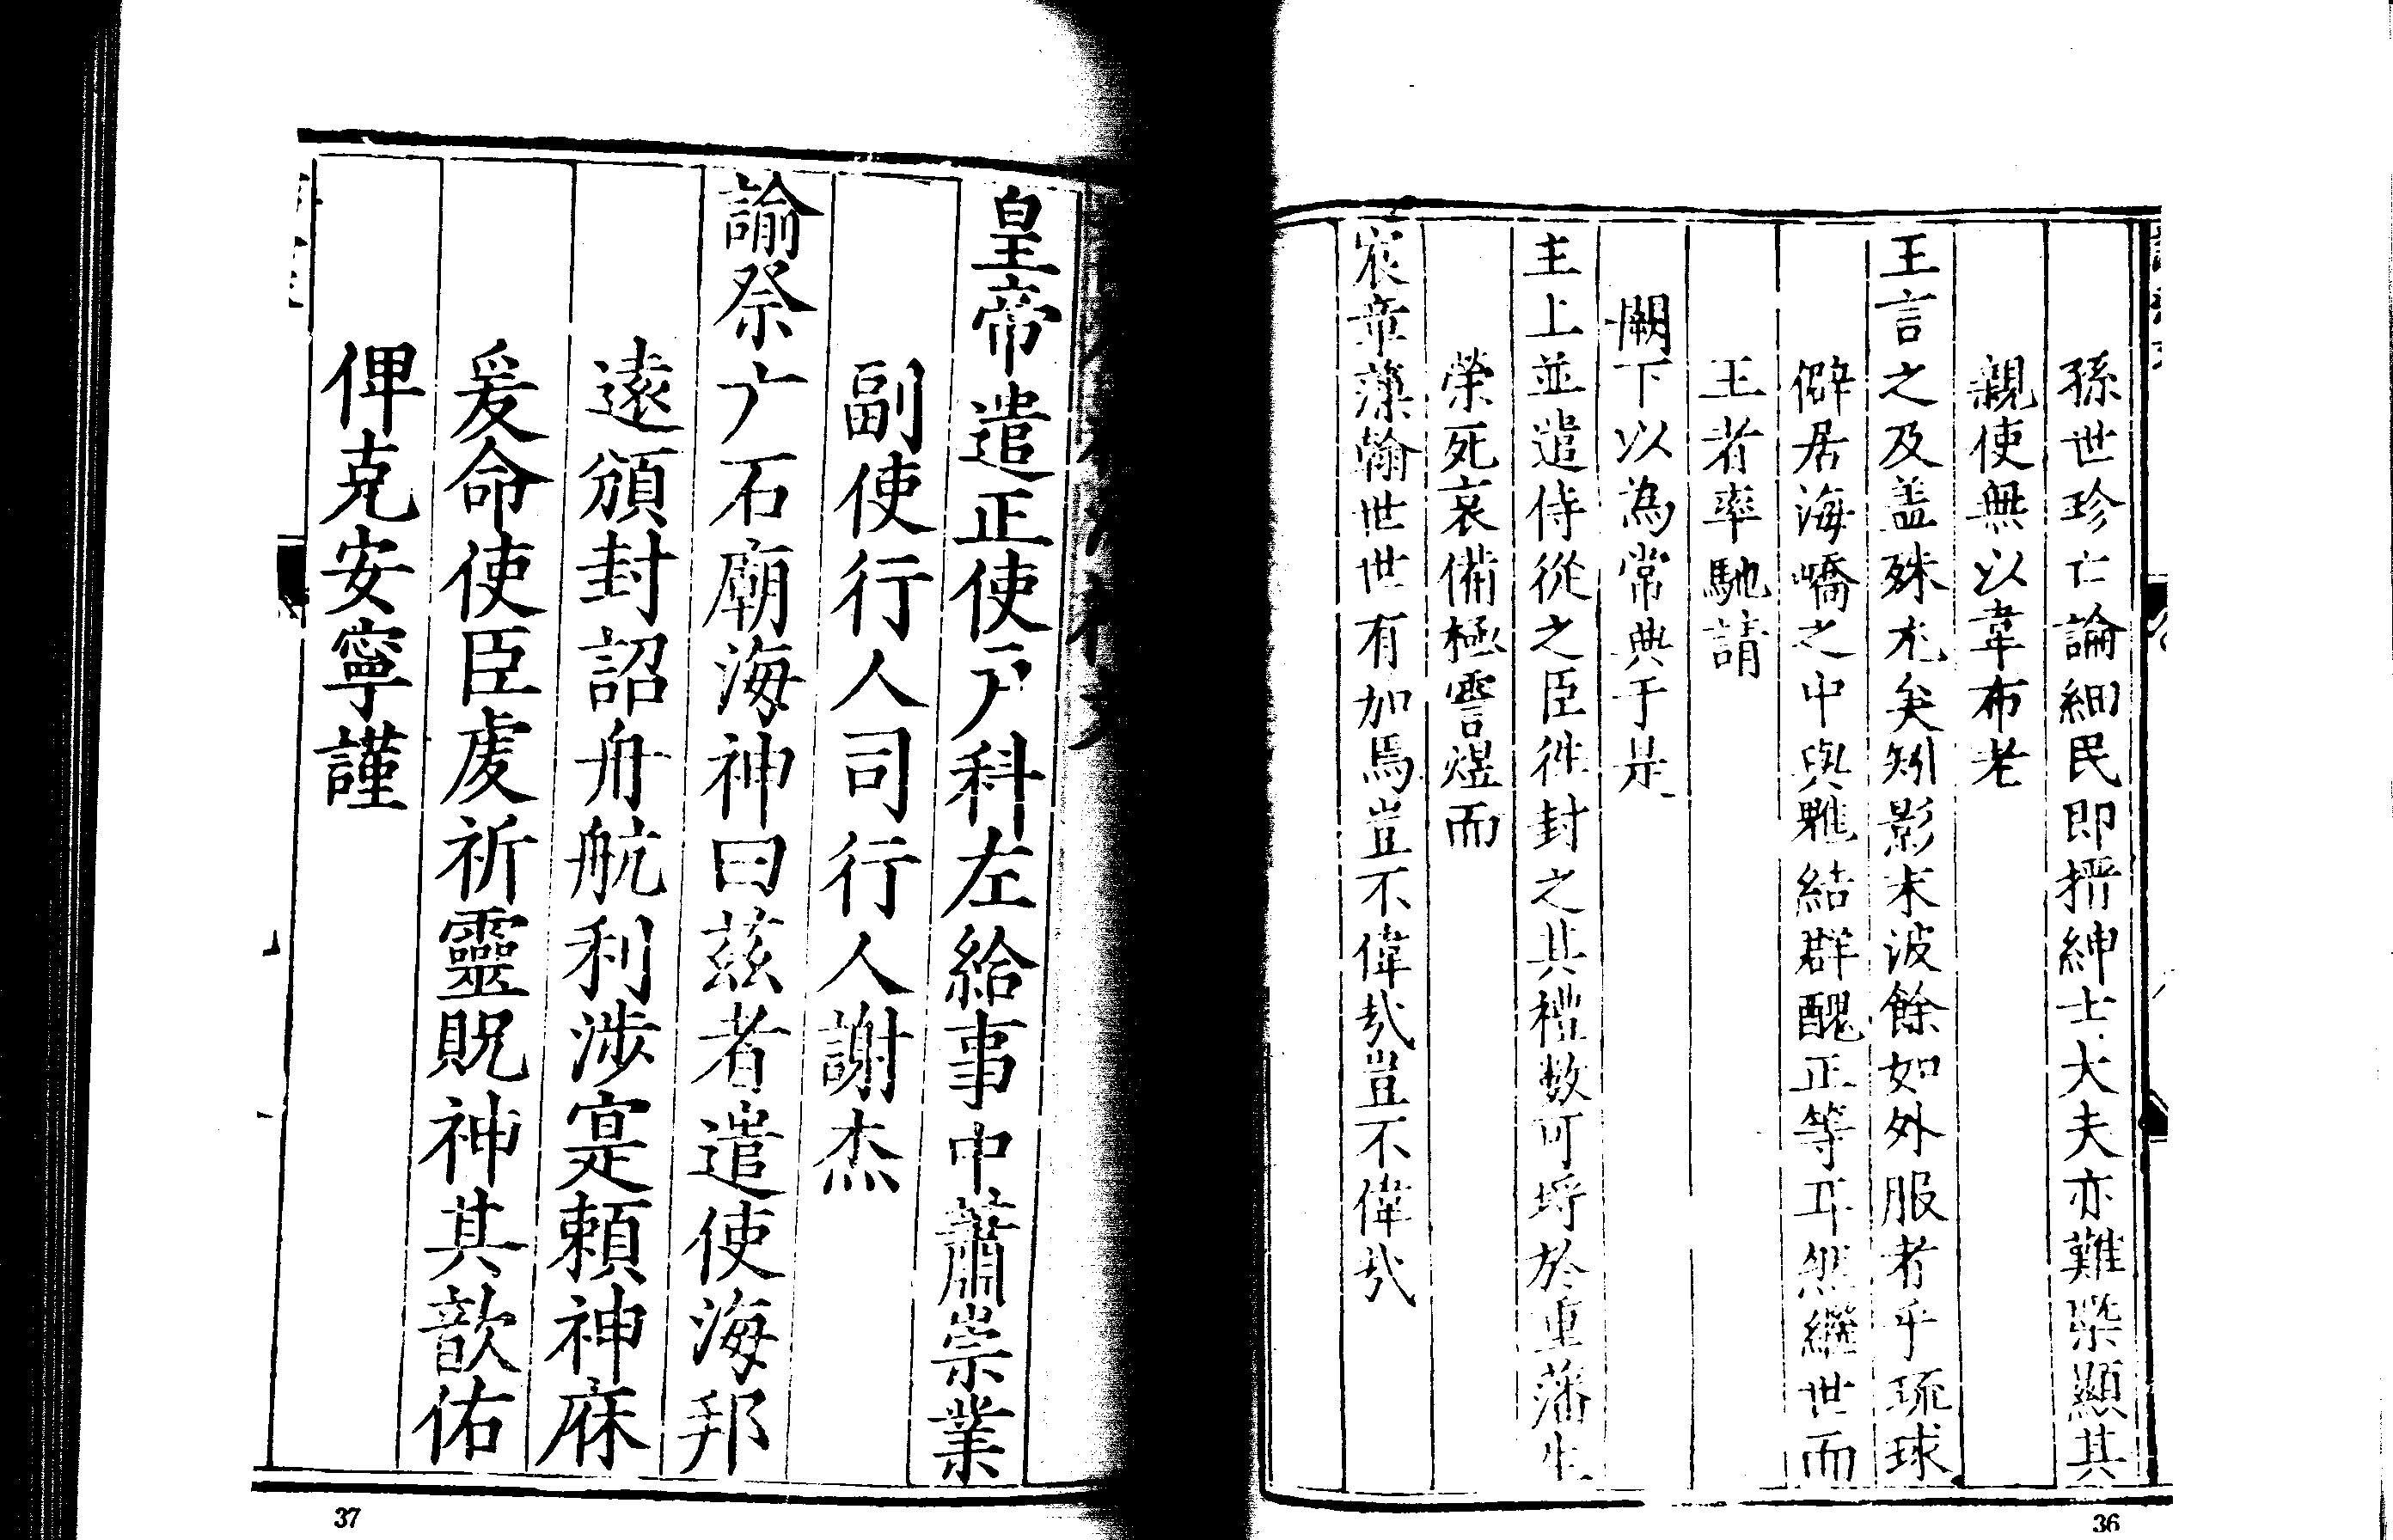 孫世珍亡論細民即搢紳士大夫亦難槩顯其
親使無以韋布老
王言之及盖殊尤矣矧影末波餘如外服者乎琉球
僻居海嶠之中與雕結群醜正等耳然繼世而
王者率馳請
闕下以為常典于是
主上並遣侍從之臣徃封之其禮数可埒於重藩生
榮死哀備極霅煜而
宸章藻翰世世有加焉豈不偉㢤豈不偉㢤
36
皇帝遣正使戶科左給事中蕭崇業
副使行人司行人謝杰
諭祭广石廟海神曰茲者遣使海邦
遠頒封詔舟航利涉寔頼神庥
爰命使臣䖍祈靈貺神其歆佑
俾克安寧謹
37